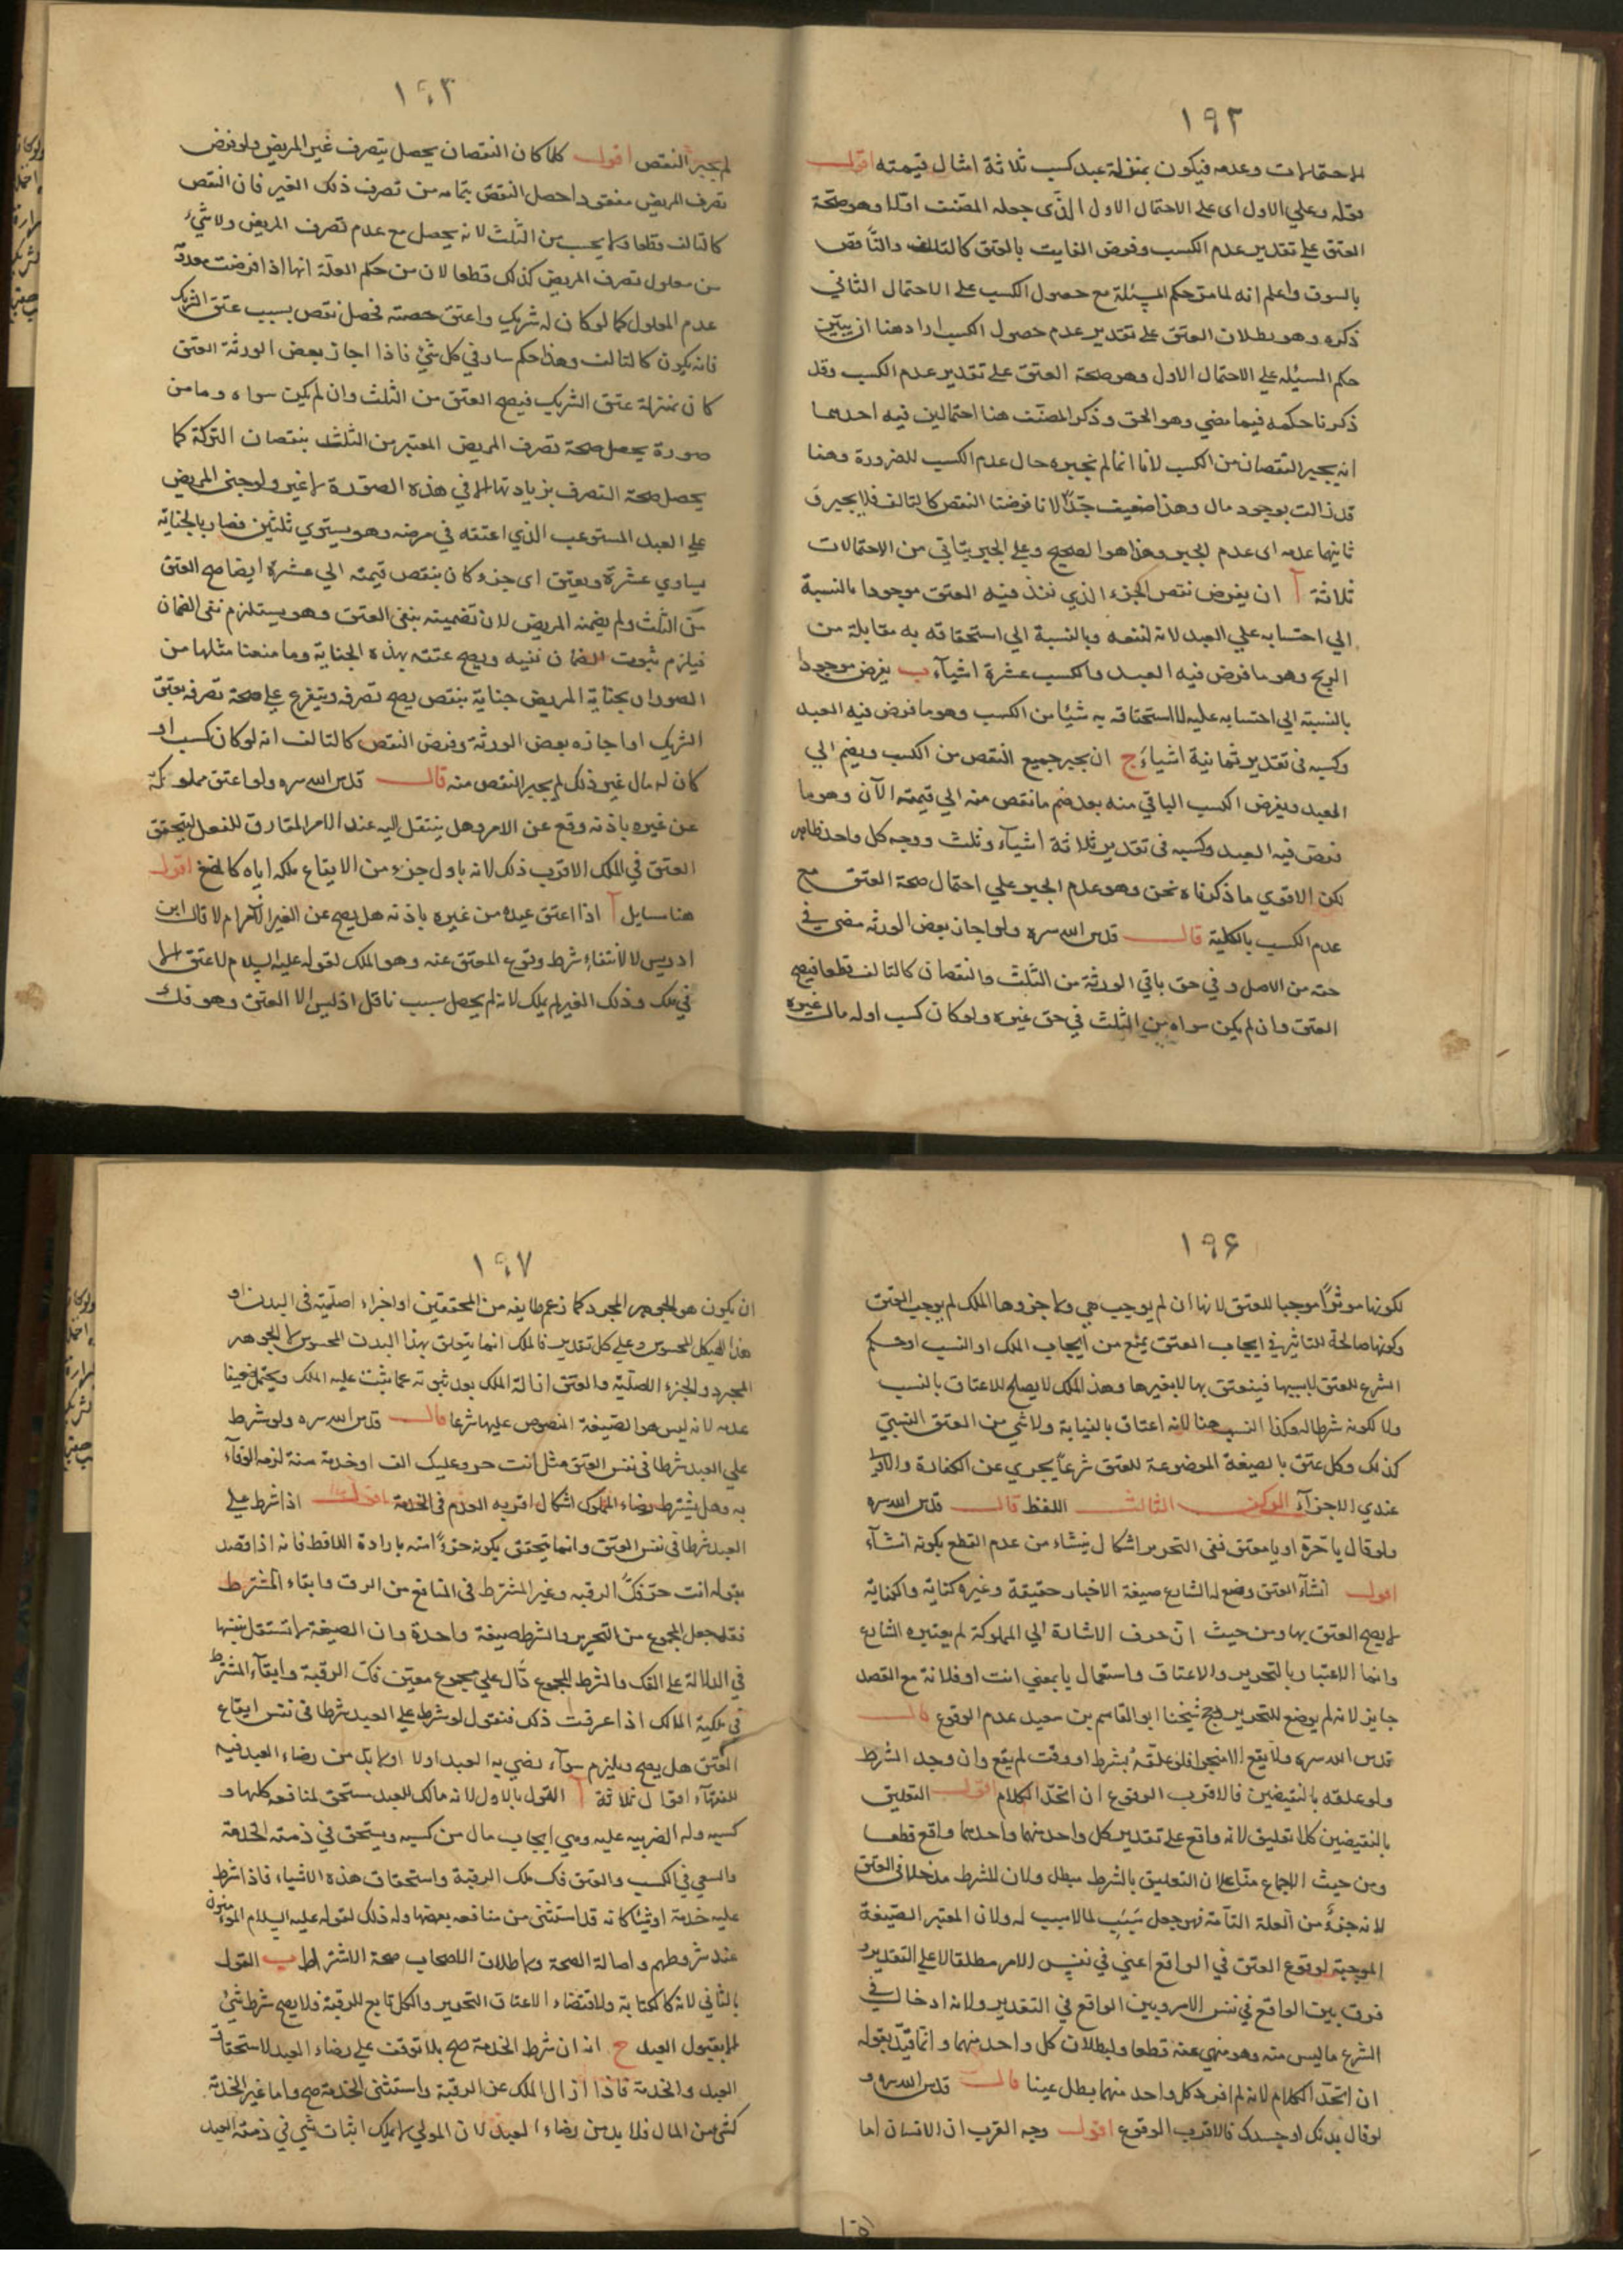 ١٩٢
الاحتمالات وعدمه فيكون بمنزلة عبد كسب ثلاثة امثال قيمته اقول
قوله وعلي الاول اى على الاحتمال الاول الذى جعله المصنف اولا وهو صحة
العتق على تقدير عدم الكسب وفرض الفايت بالعتق كالتالف والناقص
بالسوق واعلم انه لما مر حكم المسئلة مع حصول الكسب على الاحتمال الثاني
ذكره وهو بطلان العتق على تقدير عدم حصول الكسب اراد هنا ان يبين
حكم المسئله على الاحتمال الاول وهو صحة العتق على تقدير عدم الكسب وقد
ذكرنا حكمه فيما مضي وهو الحق وذكر المصنف هنا احتمالين فيه احدهما
انه يجبر النقصان من الكسب لانا انما لم نجبره حال عدم الكسب للضرورة وهنا
قد زالت بوجود مال وهذا ضعيف جدا لانا فرضنا النقص كالتالف فلا يجبر و
ثانيهما عدمه اى عدم الجبر وهذا هو الصحيح وعلي الجبر يتاتي من الاحتمالات
ثلاثة آ ان يفرض نقص الجزء الذي نفذ فيه العتق موجودا بالنسبة
الي احتسابه علي العبد لانه لنفعه وبالنسبة الي استحقاقه به مقابلة من
الربح وهو ما فرض فيه العبد والكسب عشرة اشياء ب يفرض موجودا
بالنسبة الي احتسابه عليه لا استحقاقه به شيئا من الكسب وهو ما فرض فيه العبد
وكسبه في تقدير ثمانية اشياء ج ان يجبر جميع النقص من الكسب ويضم الي
العبد ويفرض الكسب الباقي منه بعد ضم ما نقص منه الي قيمته الآن وهو ما
فرض فيه العبد وكسبه في تقدير ثلاثة اشياء وثلث ووجه كل واحد ظاهر
لكن الاقوي ما ذكرناه نحن وهو عدم الجبر علي احتمال صحة العتق مع
عدم الكسب بالكلية قال قدس الله سره ولو اجاز بعض الورثه مضى في
حقه من الاصل وفي حق باقي الورثة من الثلث والنقصان كالتالف قطعا فيصح
العتق وان لم يكن سواه من الثلث في حق غيره ولو كان كسب او له مال غيره
١٩٣
لم يجبر النقص اقول كلما كان النقصان يحصل بتصرف غير المريض ولو فرض
تصرف المريض مفقودا حصل النقص بتمامه من تصرف ذلك الغير فان النقص
كالتالف قطعا ولا يحسب من الثلث لانه يحصل مع عدم تصرف المريض ولا شيء
من معلول تصرف المريض كذلك قطعا لان من حكم العلة انها اذا فرضت معدومة
عدم المعلول كما لو كان له شريك واعتق حصته فحصل نقص بسبب عتق الشريك
فانه يكون كالتالف وهذا حكم سار في كل شئ فاذا اجاز بعض الورثة العتق
كان بمنزلة عتق الشريك فيصح العتق من الثلث وان لم يكن سواه وما من
صورة يحصل صحة تصرف المريض المعتبر من الثلث بنقصان التركة كما
يحصل صحة التصرف بزيادتها الا في هذه الصورة لا غير ولو جنى المريض
علي العبد المستوعب الذي اعتقه في مرضه وهو يستوي ثلثين فصار بالجناية
يساوي عشرة ويعتق اى جزء كان بنقص قيمته الي عشرة ايضا صح العتق
من الثلث ولم يضمنه المريض لان تضمينه بنفي العتق وهو يستلزم نفي الضمان
فيلزم ثبوت الضمان نفيه ويصح عتقه بهذه الجناية وما منعنا مثلها من
الصور ان بجناية المريض جناية بنقص يصح تصرفه ويتفرع علي صحة تصرفه بعتق
الشريك او اجازه بعض الورثة وفرض النقص كالتالف انه لو كان كسب او
كان له مال غير ذلك لم يجبر النقص منه قال قدس الله سره ولو اعتق مملوكه
عن غيره باذنه وقع عن الامر وهل ينتقل اليه عند الامر المقارن للفعل ليتحقق
العتق في الملك الاقرب ذلك لانه باول جزء من الايقاع ملكه اياه كالفسخ اقول
هنا مسايل آ اذا اعتق عبده من غيره باذنه هل يصح عن الغير الآمر ام لا قال ابن
ادريس لا لانتفاء شرط وقوع المعتق عنه وهو الملك لقوله عليه السلام لا عتق الا
في ملك وذلك الغير لم يملك لانه لم يحصل سبب ناقل اذ ليس الا العتق وهو فك
١٩۶
لكونها موثرا موجبا للعتق لانها ان لم يوجب هي ولا جزوها الملك لم يوجب العتق
وكونها صالحة للتاثير في ايجاب العتق يمنع من ايجاب الملك او النسب او حكم
الشرع للعتق لا بسببها فينعتق بها لا بغيرها وهذ الملك لا يصلح للاعتاق بالنسب
ولا لكونه شرطا له وكذا النسب هنا لانه اعتاق بالنيابة ولا شي من العتق النسبي
كذلك وكل عتق بالصيغة الموضوعة للعتق شرعا يجري عن الكفارة والاقرب
عندي الاجزآء الركن الثالث اللفظ قال قدس الله سره
ولو قال يا حرة او يا معتق ففى التحرير اشكال ينشاء من عدم القطع بكونه انشآء
اقول انشآء العتق وضع له الشارع صيغة الاخبار حقيقة وغيره كناية والكناية
لا يصح العتق بها ومن حيث ان حرف الاشارة الي المملوكة لم يعتبره الشارع
وانما الاعتبار بالتحرير والاعتاق واستعمال يا بمعني انت او فلانة مع القصد
جايز لانه لم يوضع للتحرير ورجح شيخنا ابو القاسم بن سعيد عدم الوقوع قال
قدس الله سره ولا يقع الا منجزا فلو علقه بشرط او وقت لم يقع وان وجد الشرط
ولو علقه بالنقيضين فالاقرب الوقوع ان اتحد الكلام اقول التعليق
بالنقيضين كلا تعليق لانه واقع على تقدير كل واحد منهما واحدهما واقع قطعا
ومن حيث الاجماع منا علي ان التعليق بالشرط مبطل ولان للشرط مدخلا في العتق
لانه جزء من العلة التامة فهو جعل سبب لما لا سبب له ولان المعتبر الصيغة
الموجبة لوقوع العتق في الواقع اعني في نفس الامر مطلقا لا علي التقدير و
فرق بين الواقع في نفس الامر وبين الواقع في التقدير ولانه ادخال في
الشرع ما ليس منه وهو منهي عنه قطعا ولبطلان كل واحد منهما وانما قيد بقوله
ان اتحد الكلام لانه لم افرد كل واحد منهما بطل عينا قال قدس الله سره و
لو قال بدنك او جسدك فالاقرب الوقوع اقول وجه القرب ان الانسان اما
١٩٧
ان يكون هو الجوهر المجرد كما زعم طايفه من المحققين او اجزاء اصلية في البدن او
هذا الهيكل المحسوس وعلي كل تقدير فالملك انما يتعلق بهذا البدن المحسوس لا الجوهر
المجرد والجزء الاصلية والعتق ازالة الملك بعد ثبوته عما يثبت عليه الملك ويحتمل
عدمه لانه ليس هو الصيغة المنصوص عليها شرعا قال قدس الله سره ولو شرط
علي العبد شرطا في نفس العتق مثل انت حر وعليك الف او خدمة سنة لزمه الوفآء
به وهل يشترط رضاء المملوك اشكال اقربه العدم في الخدمة اقول اذا شرط علي
العبد شرطا في نفس العتق وانما يتحقق بكونه جزءا منه بارادة اللافظ فانه اذا قصد
بقوله انت حر فك الرقبه وغير المشترط في المنافع من الرق وابقاء المشترط
فقد جعل المجموع من التحرير والشرط صيغة واحدة وان الصيغة لا تستقل بنفسها
في الدلالة على الفك والشرط المجموع دال علي مجموع معنيين فك الرقبة وابقآء المشترط
في ملكية المالك اذا عرفت ذلك فنقول لو شرط علي العبد شرطا في نفس ايقاع
العتق هل يصح ويلزم سوآء رضي به العبد او لا او لا بد من رضاء العبد فيه
للفقهآء اقوال ثلاثة آ القول بالاول لانه مالك للعبد مستحق لمنافعه كلها و
كسبه وله الضريبه عليه وهي ايجاب مال من كسبه ويستحق في ذمته الخدمة
والسعي في الكسب والعتق فك ملك الرقبة واستحقاق هذه الاشياء فاذا شرط
عليه خدمة او شيئا كانه قد استثنى من منافعه بعضها وله ذلك لقوله عليه السلام المومنون
عند شروطهم واصالة الصحة ولاطلاق الاصحاب صحة الاشتراط ب القول
بالثاني لانه كالكتابة ولاقتضاء الاعتاق التحرير والكل تابع للرقبة فلا يصح شرط شئ
الا بقبول العبد ج انه ان شرط الخدمة صح بلا توقف علي رضاء العبد لاستحقاق
العبد والخدمة فاذا ازال الملك عن الرقبة واستثنى الخدمة صح واما غير الخدمة
كشئ من المال فلا بد من رضاء العبد لان المولي لا يملك اثبات شي في ذمة العبد